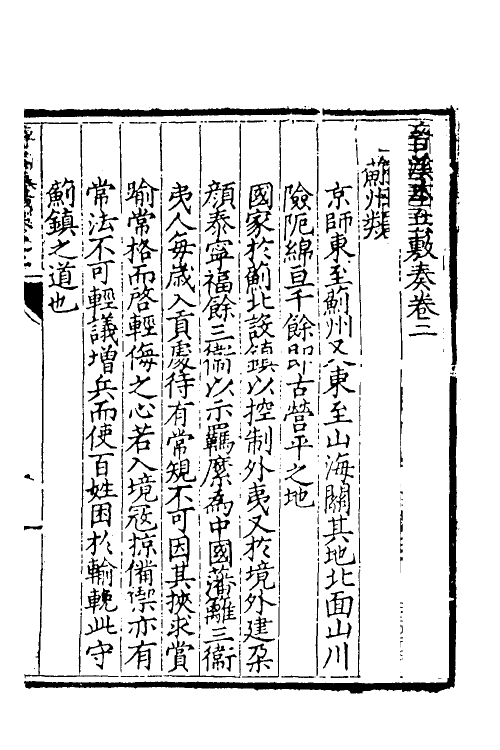 晉溪本兵敷奏卷二
薊州類
京師東至薊州又東至山海關其地北面山川
險阨綿亘千餘即古營平之地
國家於薊北設鎮以控制外夷又於境外建朶
顔泰寧福餘三衞以示羈縻為中國藩籬三衞
夷人每歲入貢處待有常規不可因其挾求賞
踰常格而啓輕侮之心若入境寇掠備禦亦有
常法不可輕議增兵而使百姓困於輸輓此守
薊鎮之道也